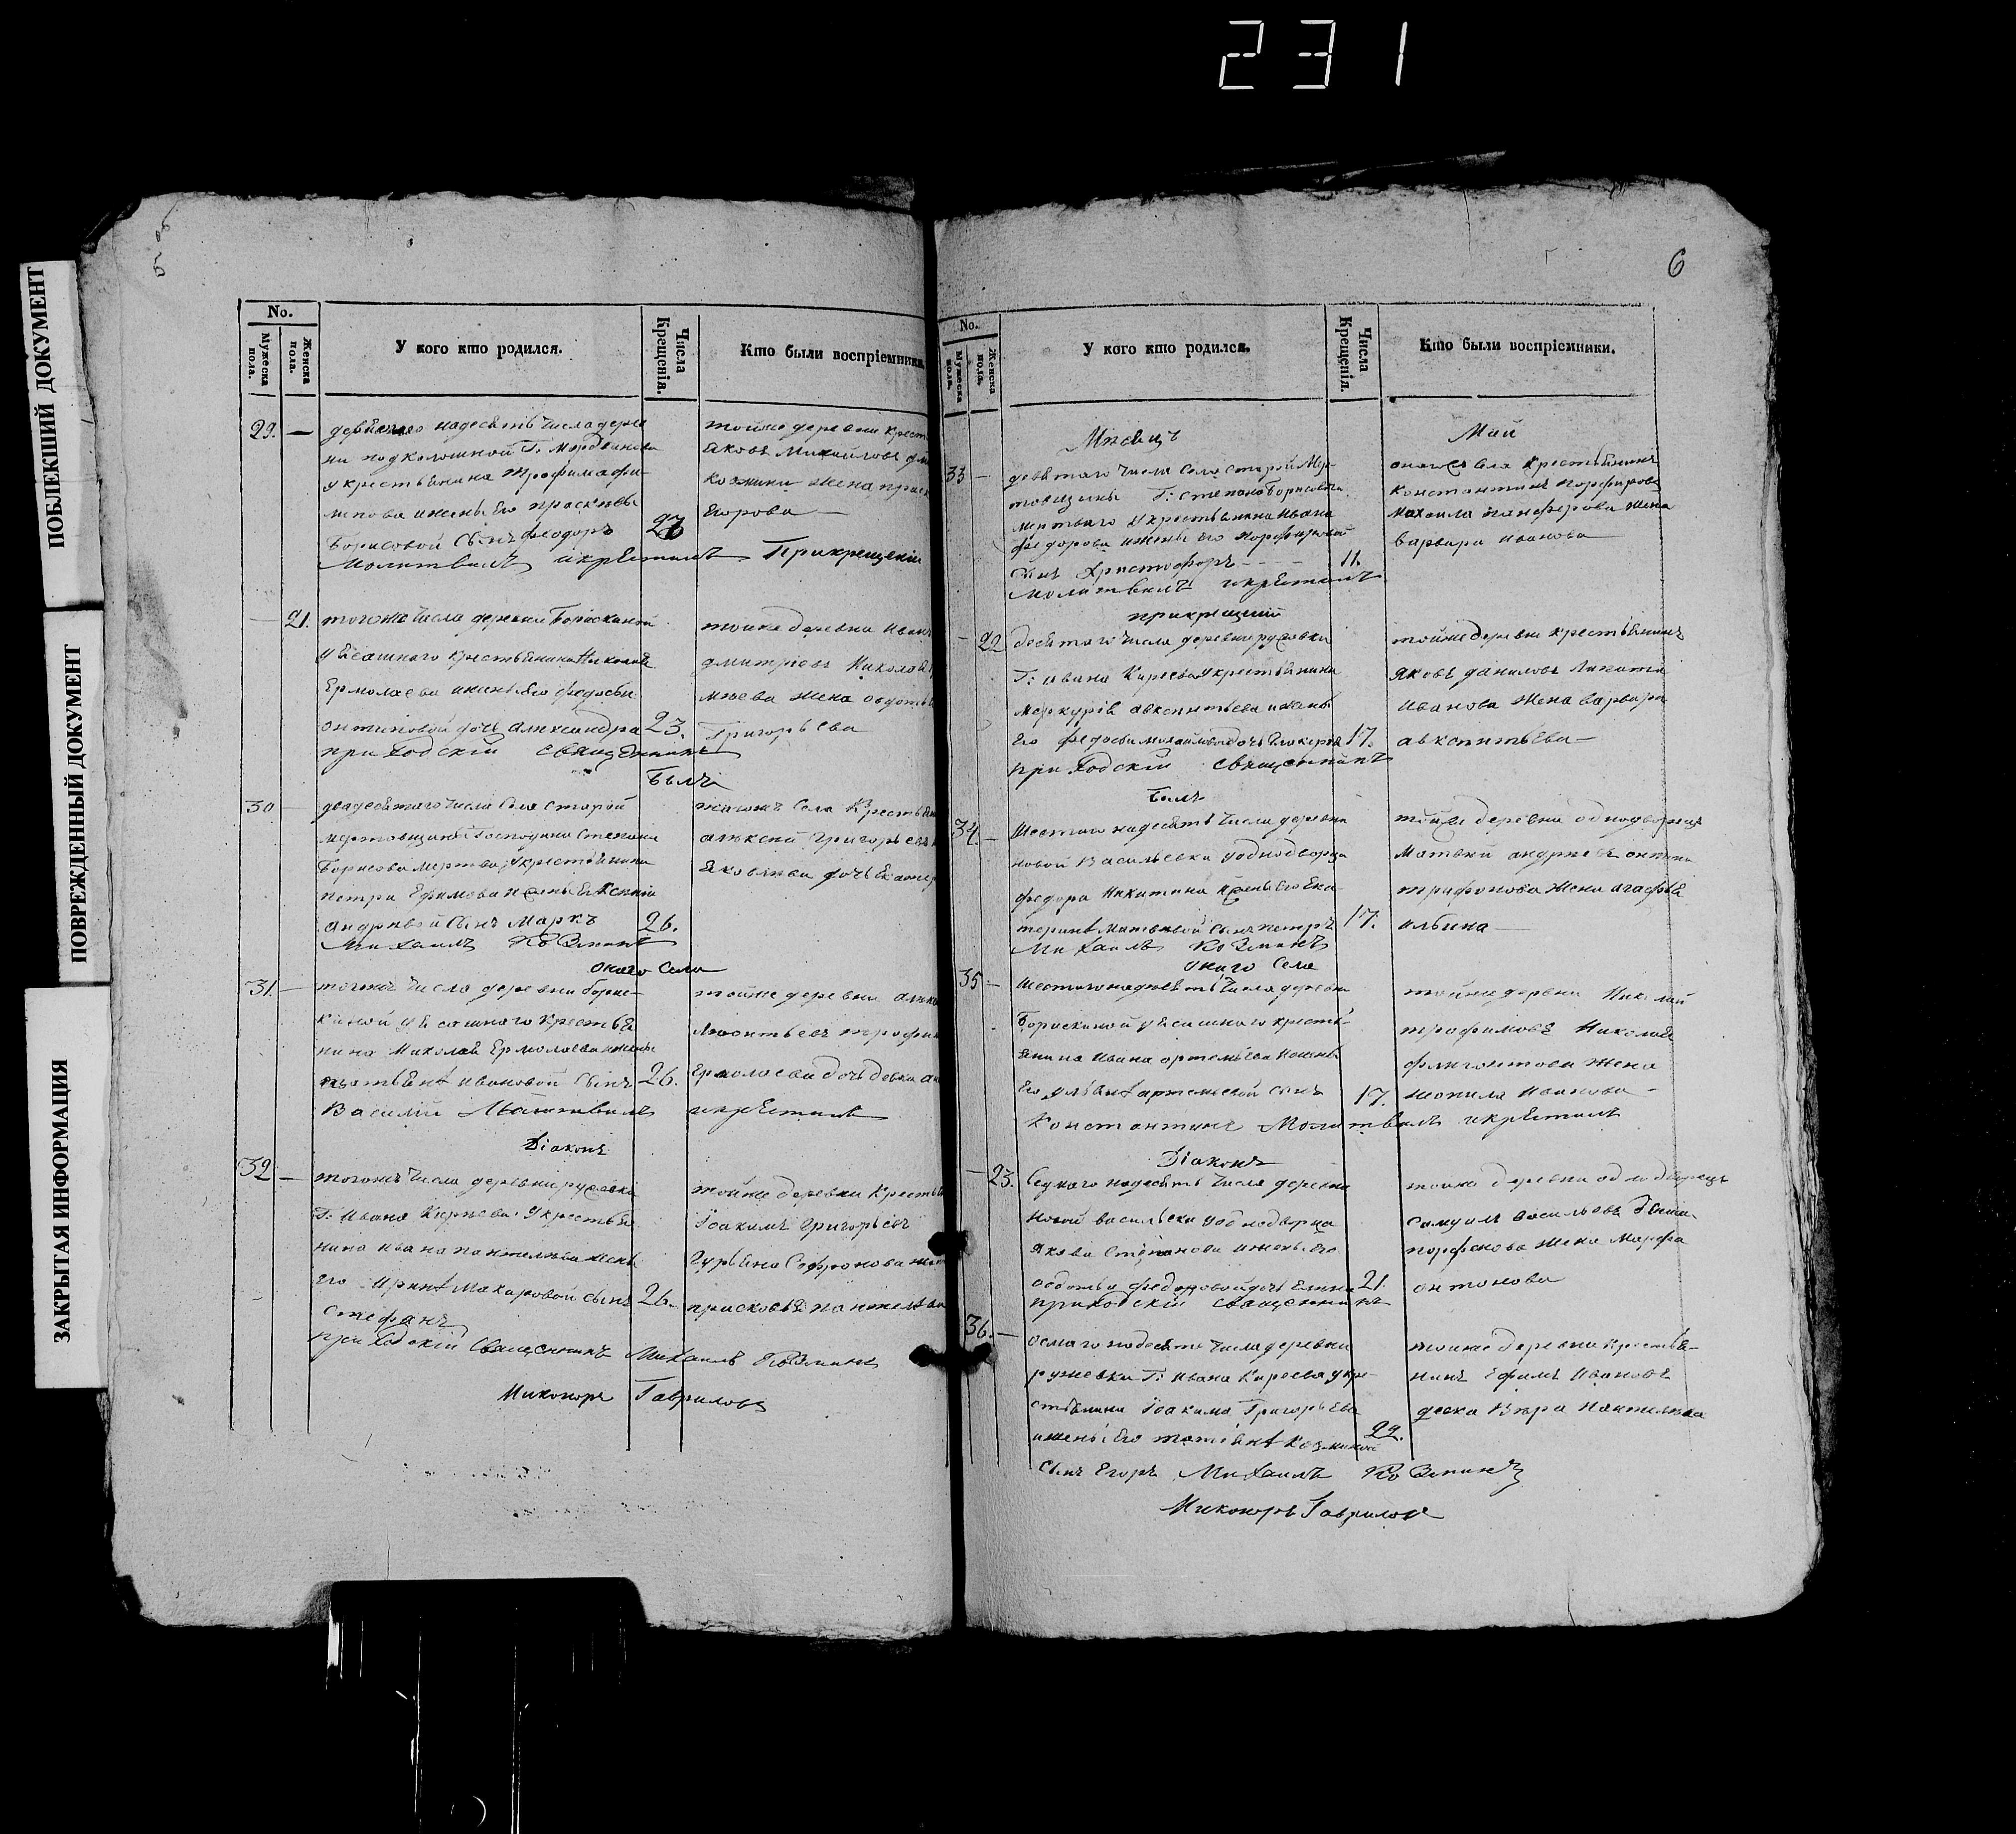 231
ПОБЛЕКШИЙ ДОКУМЕНТ
ПОВРЕЖДЕННЫЙ ДОКУМЕНТ
ЗАКРЫТАЯ ИНФОРМАЦИЯ
No.
Мужеска пола.
Женска пола.
У кого кто родился.
Числа Крещенія.
Кто были воспріемники
29. —
надесять числа дерев
ни Г. Мордвинова
у крестьянина Трофима Фи-
липова и жены его Прасковьи
Борисовой сынъ Феодоръ 23
Молитвилъ и крестилъ При крещеніи
тойже деревни крест
Яковъ Михайловъ
жена
Егорова —
— 21.
тогожъ числа деревни Борискиной
у ясашного крестьянина Николая
Ермолаева и жены его Федосьи
Онтиповой дочь Александра 23.
приходскій священникъ
былъ
тойже деревни Иванъ
Дмитріевъ Николая
жена Овдотья
Григорьева
30 —
двадесятого числа села Старой
Мертовщины Господина Степана
Борисова у крестьянина
Петра Ефимова и жены его Ксеніи
Андреевой сынъ Маркъ 26.
Михаилъ Козминъ
оного села
тогожъ села крестьян
Алексей Григорьевъ
Яковлева дочь Екатер
31. —
тогожъ числа деревни Борис-
киной у ясашного крестья
нина Николая Ермолаева и жены
его Татьяны Ивановой сынъ 26.
Василій Молитвилъ и крестилъ
Діаконъ
тойже деревни
Леонтьевъ Трофи
Ермолаева дочь девка
32 —
тогожъ числа деревни Ружевки
Г. Ивана Киреева у крестья
нина Ивана Пантелеева и жены
его Ирины Макаровой сынъ 26.
Стефанъ
приходскій священникъ Михаилъ Козминъ
Никоноръ Гавриловъ
тойже деревни крестья
Іоакимъ Григорьевъ
Гурьяна Софронова жена
Прасковья Пантелеева
6
No.
Мужеска пола.
Женска пола.
У кого кто родился.
Числа Крещенія.
Кто были воспріемники.
Месецъ Май
33 —
девятого числа села Старой Мер-
товщины Г: Степана Борисовича
Мертваго у крестьянина Ивана
Федорова и жены его
сынъ Христофоръ 11.
молитвилъ и крестилъ
при крещеніи
оногожъ села крестьянинъ
Константинъ Порфировъ
Михаила Панферова жена
Варвара Иванова
— 22
десятого числа деревни Ружевки
Г: Ивана Киреева у крестьянина
Меркурія Авксентьева и жены
его Федосьи Михайловой дочь Гликерія 17.
приходскій священникъ
былъ
тойже деревни крестьянинъ
Яковъ Даниловъ
Иванова жена Варвара
Авксентьева —
34. —
Шестого надесять числа деревни
Новой Васильевки у однодворца
Федора Никитина и жены его Ека-
терины Матвеевой сынъ Петръ 17.
Михаилъ Козминъ
оного села
тойже деревни однодворецъ
Матвей Андреевъ Онтипа
Трифонова жена Агафья
Ильина —
35 —
Шестогонадесять числа деревни
Борискиной у ясашного кресть-
янина Ивана Ортемьева и жены
его Ульяны Артемьевой сынъ 17.
Константинъ Молитвилъ и крестилъ
Діаконъ
тойже деревни Николай
Трофимовъ Николая
жена
Иванова —
— 23.
Седмого надесять числа деревни
Новой Васильевки у однодворца
Якова Степанова и жены его
Овдотьи Федоровой дочь Елена 21.
приходскій священникъ
тойже деревни однодворецъ
Самуилъ Васильевъ
Порфенова жена Марфа
Онтонова
36. —
осмого надесять числа деревни
Ружевки Г: Ивана Киреева у кре-
стьянина Іоакима Григорьева
и жены его Татьяны Козминой 22.
сынъ Егоръ Михаилъ Козминъ
Никоноръ Гавриловъ
тойже деревни крестья-
нинъ Ефимъ Ивановъ
девка Вера Пантелеева